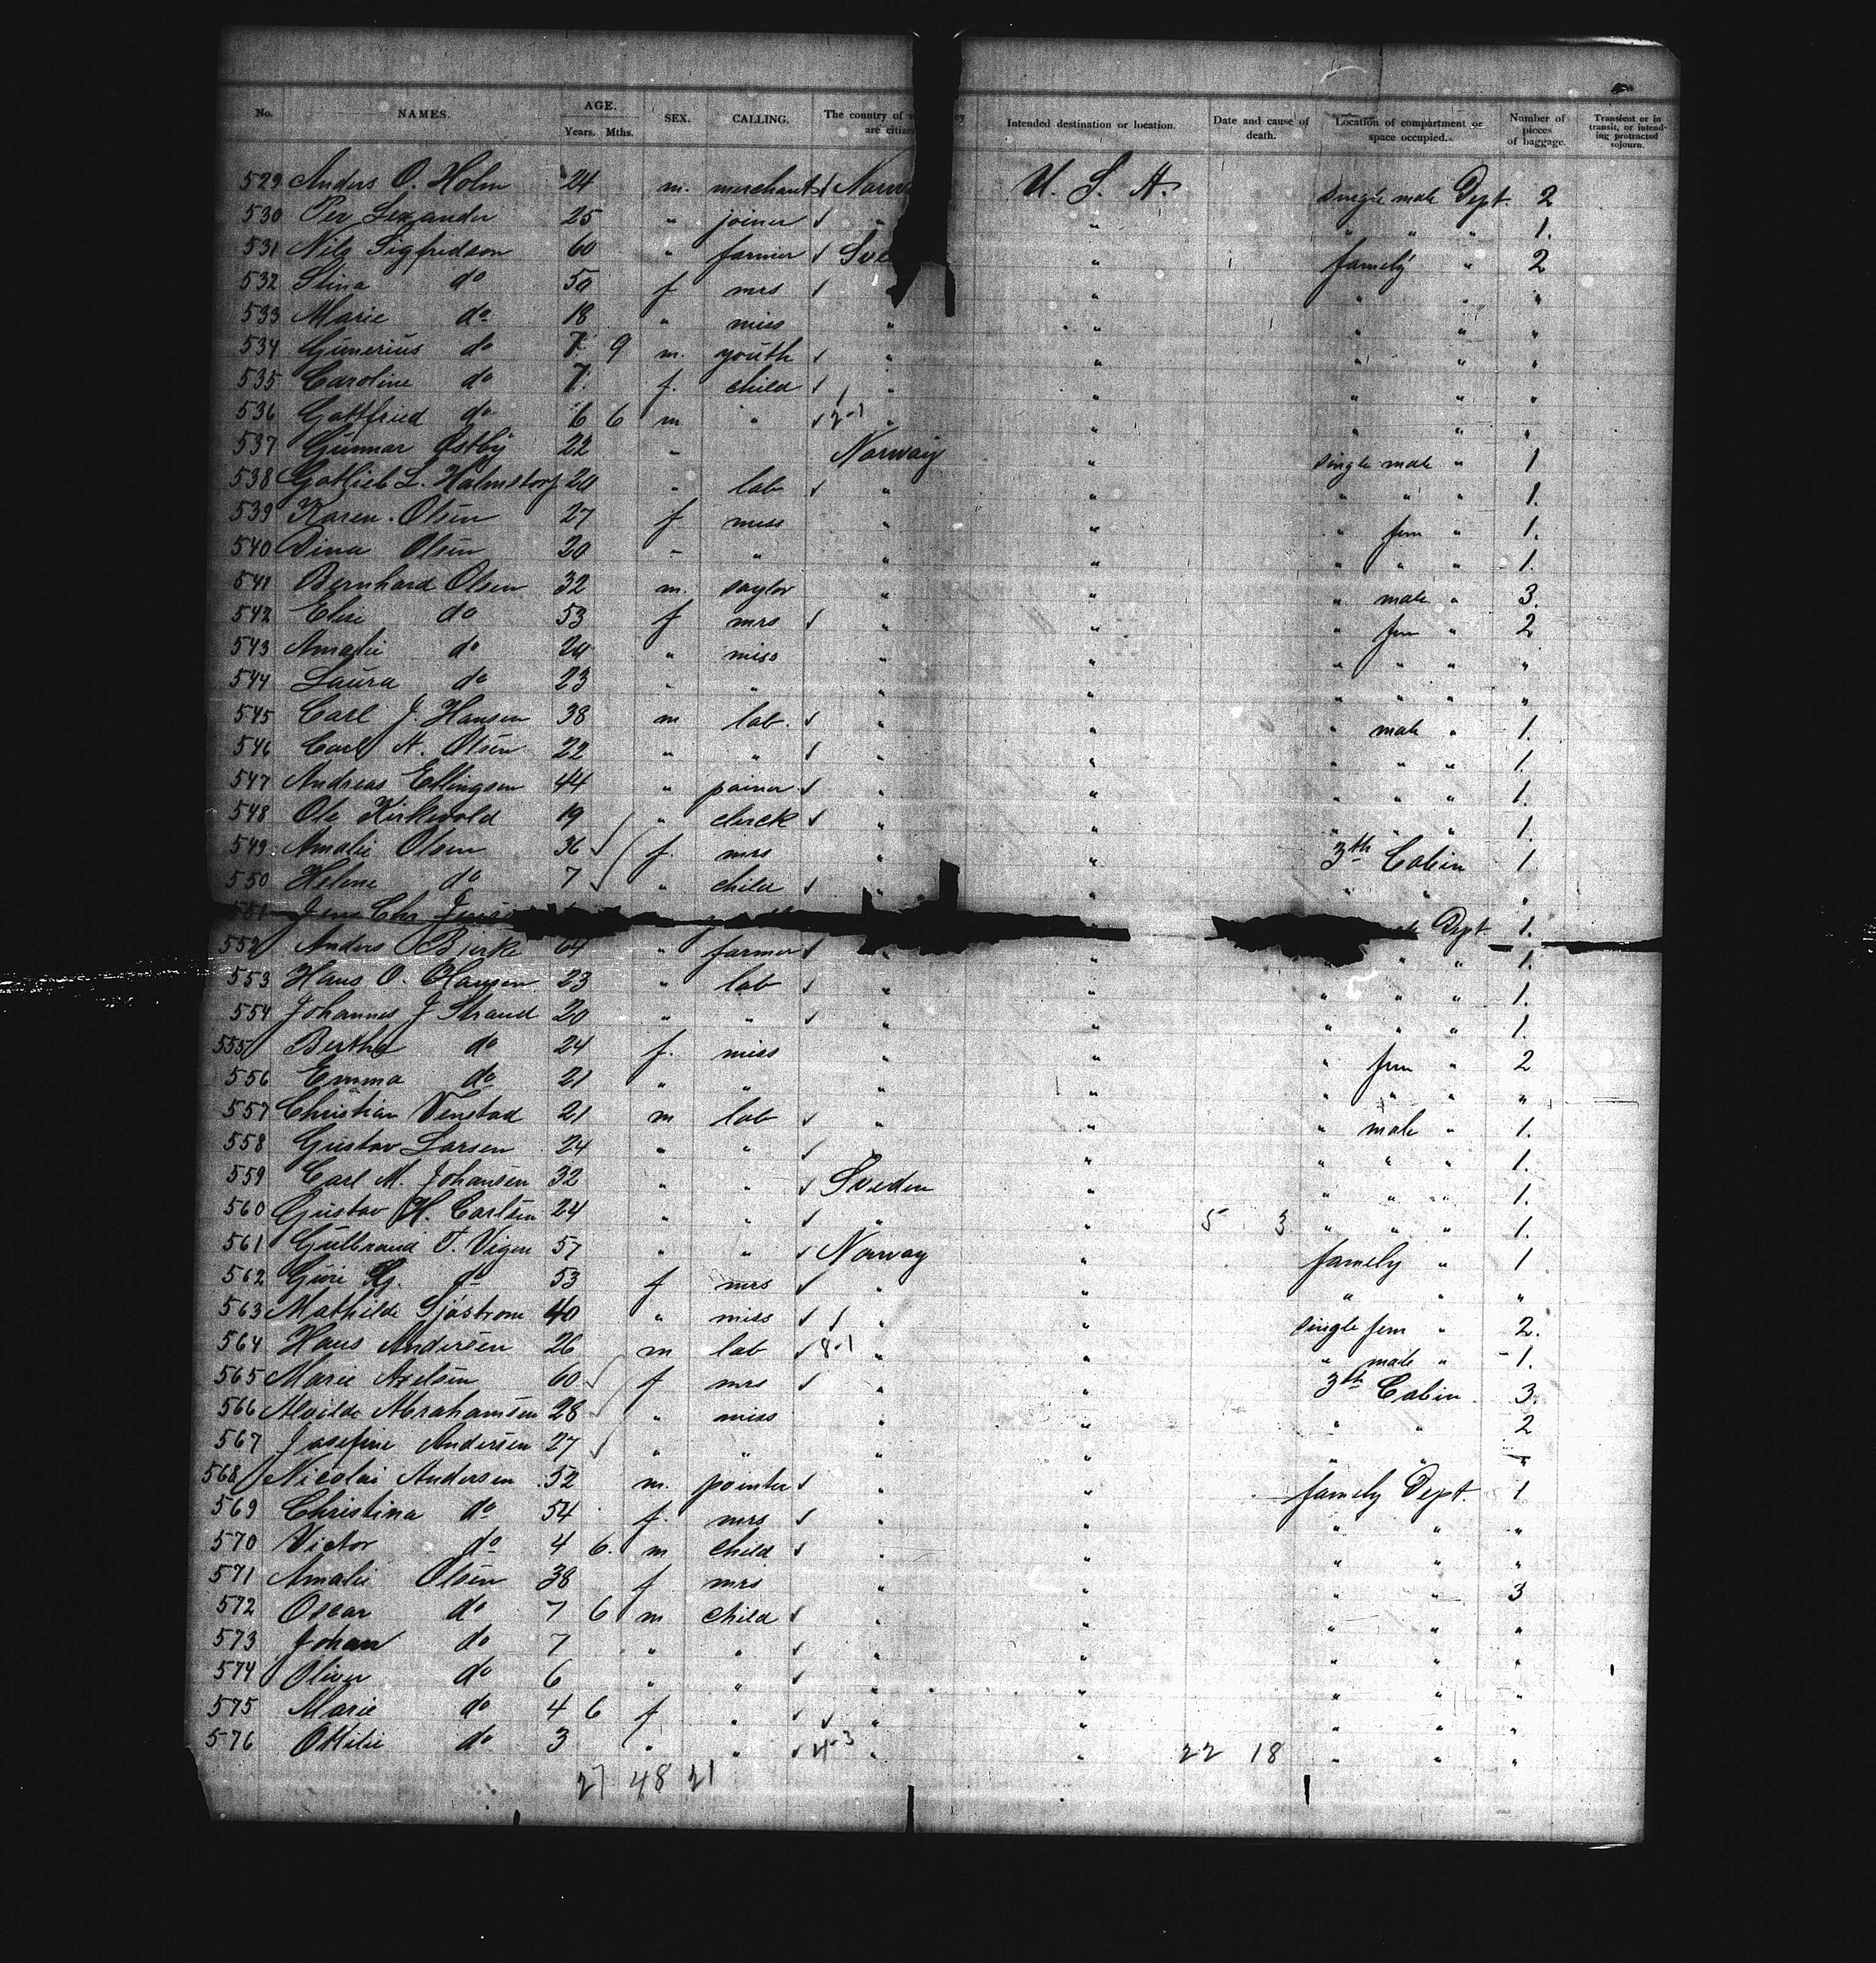 No. NAMES. AGE. Years. Mths. SEX. CALLING. The country of are citizen Intended destination or location. Date and cause of death. Location of compartment or space occupied. Number of pieces of baggage. Transient or in transit, or intending protracted sojourn.
529 Anders O. Holm 24 m. merchant Norw U. S. A. single male Dept. 2
530 Per 25 " joiner " " " " " 1.
531 Nils Sigfredson 60 " farmer Sve " family " 2
532 Stina do 50 f mrs " " " "
533 Marie do 18 " miss " " " " "
534 Gunerius do 7 9 m. youth " " " " "
535 Caroline do 7 f. child " " " " "
536 Gottfried do 6 6 m " 2-1 " " " " "
537 Gunnar Østby 22 " Norway " single male " 1
538 Gotlieb L. Halmstorp 20 " lab " " " " " 1.
539 Karen Olsen 27 f miss " " " fem " 1.
540 Dina Olsen 20 " " " " " " " 1.
541 Bernhard Olsen 32 m. saylor " " " male " 3.
542 Elise do 53 f mrs " " " fem " 2
543 Amalie do 20 " miss " " " " " "
544 Laura do 23 " " " " " " " "
545 Carl J. Hansen 38 m lab. " " " male " 1.
546 Carl A. Olsen 22 " " " " " " " 1.
547 Andreas Ellingsen 44 " " " " " " 1.
548 Ole Kirkevold 19 " clerck " " " " " 1.
549 Amalie Olsen 36 f. mrs " " 3th Cabin 1
550 Helene do 7 " child " " " " "
551 Jens Chr. Dept. 1.
552 Anders Bjerke 64 " farmer " " " " 1.
553 Hans O. Hansen 23 " lab " " " " " 1.
554 Johannes J Strand 20 " " " " " " " 1.
555 Bertha do 24 f. miss " " " fem " 2
556 Emma do 21 " " " " " " " "
557 Christian Venstad 21 m lab " " " male " 1.
558 Gustav Larsen 24 " " " " " " 1.
559 Carl M. Johansen 32 " " Sveden " " " " 1.
560 Gustav H. Carlsen 24 " " " " 5 3 " " " 1.
561 Gulbrand T. Vigen 57 " " Norway " family " 1
562 do 53 f mrs " " " " "
563 Mathilde Sjøstrom 40 " miss " " single fem " 2.
564 Hans Andersen 26 m lab 8-1 " " " male " 1.
565 Marie Axelsen 60 f mrs " " 3th Cabin 3.
566 Alvilde Abrahamsen 28 " miss " " " " 2
567 Josefine Andersen 27 " " " " " " "
568 Nicolai Andersen 52 m. pointer " " family Dept. 1
569 Christina do 54 f. mrs " " " " "
570 Victor do 4 6. m child " " " " "
571 Amalie Olsen 38 f mrs " " " " 3
572 Oscar do 7 6 m child " " " " "
573 Johan do 7 " " " " " " "
574 Oliver do 6 " " " " " " "
575 Marie do 4 6 f " " " " " "
576 Ottilie do 3 " " 4-3 " " 22 18 " " "
27 48 21